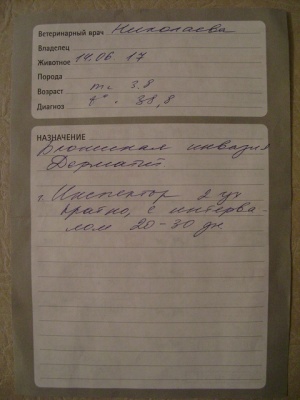 Ветеринарный врач Николаева
Владелец
Животное 14.06.17
Порода
Возраст m = 3.8
Диагноз t° - 38,8
НАЗНАЧЕНИЕ
Блошиная инвазия
Дерматит
1. Инспектор 2 х
кратно, с интерва-
лом 20-30 дн